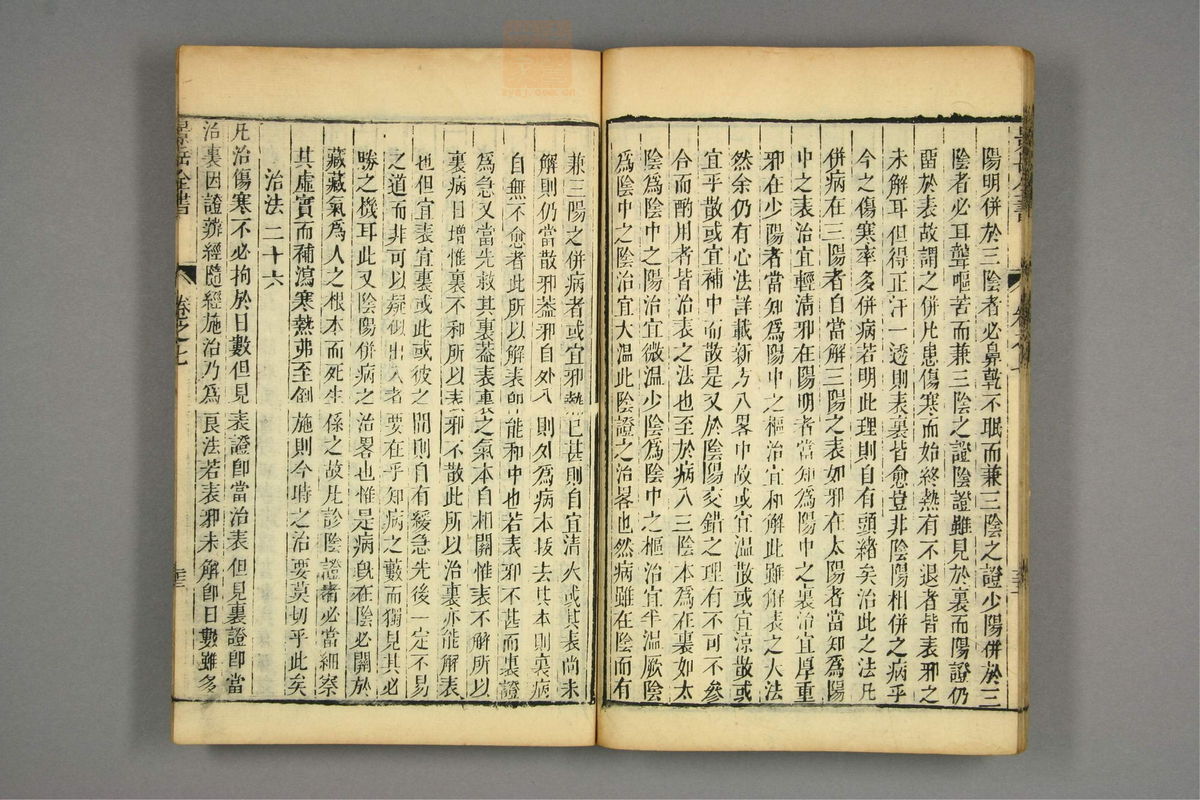 陽明併於三陰者必鼻乾不眠而兼三陰之證少陽併於三
陰者必耳聾嘔苦而兼三陰之證陰證雖見於裏而陽證仍
留於表故謂之併凡患傷寒而始終熱有不退者皆表邪之
未解耳但得正汗一透則表裏皆愈豈非陰陽相併之病乎
今之傷寒率多併病若明此理則自有頭緒矣治此之法凡
併病在三陽者自當解三陽之表如邪在太陽者當知為陽
中之表治宜輕清邪在陽明者當知為陽中之裏治宜厚重
邪在少陽者當知為陽中之樞治宜和解此雖解表之大法
然余仍有心法詳載新方八畧中故或宜温散或宜涼散或
宜平散或宜補中而散是又於陰陽交錯之理有不可不參
合而酌用者皆治表之法也至於病入三陰本為在裏如太
陰為陰中之陽治宜微温少陰為陰中之樞治宜半温厥陰
為陰中之陰治宜大温此陰證之治畧也然病雖在陰而有
兼三陽之併病者或宜邪熱已甚則自宜清火或其表尚未
解則仍當散邪葢邪自外入則外為病本拔去其本則裏病
自無不愈者此所以解表即能和中也若表邪不甚而裏證
為急又當先救其裏葢表裏之氣本自相關惟表不解所以
裏病日增惟裏不和所以表邪不散此所以治裏亦能解表
也但宜表宜裏或此或彼之間則自有緩急先後一定不易
之道而非可以疑似出入者要在乎知病之藪而獨見其必
勝之機耳此又陰陽併病之治畧也惟是病既在陰必關於
藏藏氣為人之根本而死生係之故凡診陰證者必當細察
其虛實而補瀉寒熱弗至倒施則今時之治要莫切乎此矣
治法二十六
凡治傷寒不必拘於日數但見表證即當治表但見裏證即當
治裏因證辨經隨經施治乃為良法若表邪未解即日數雖多
景岳全書
卷之七